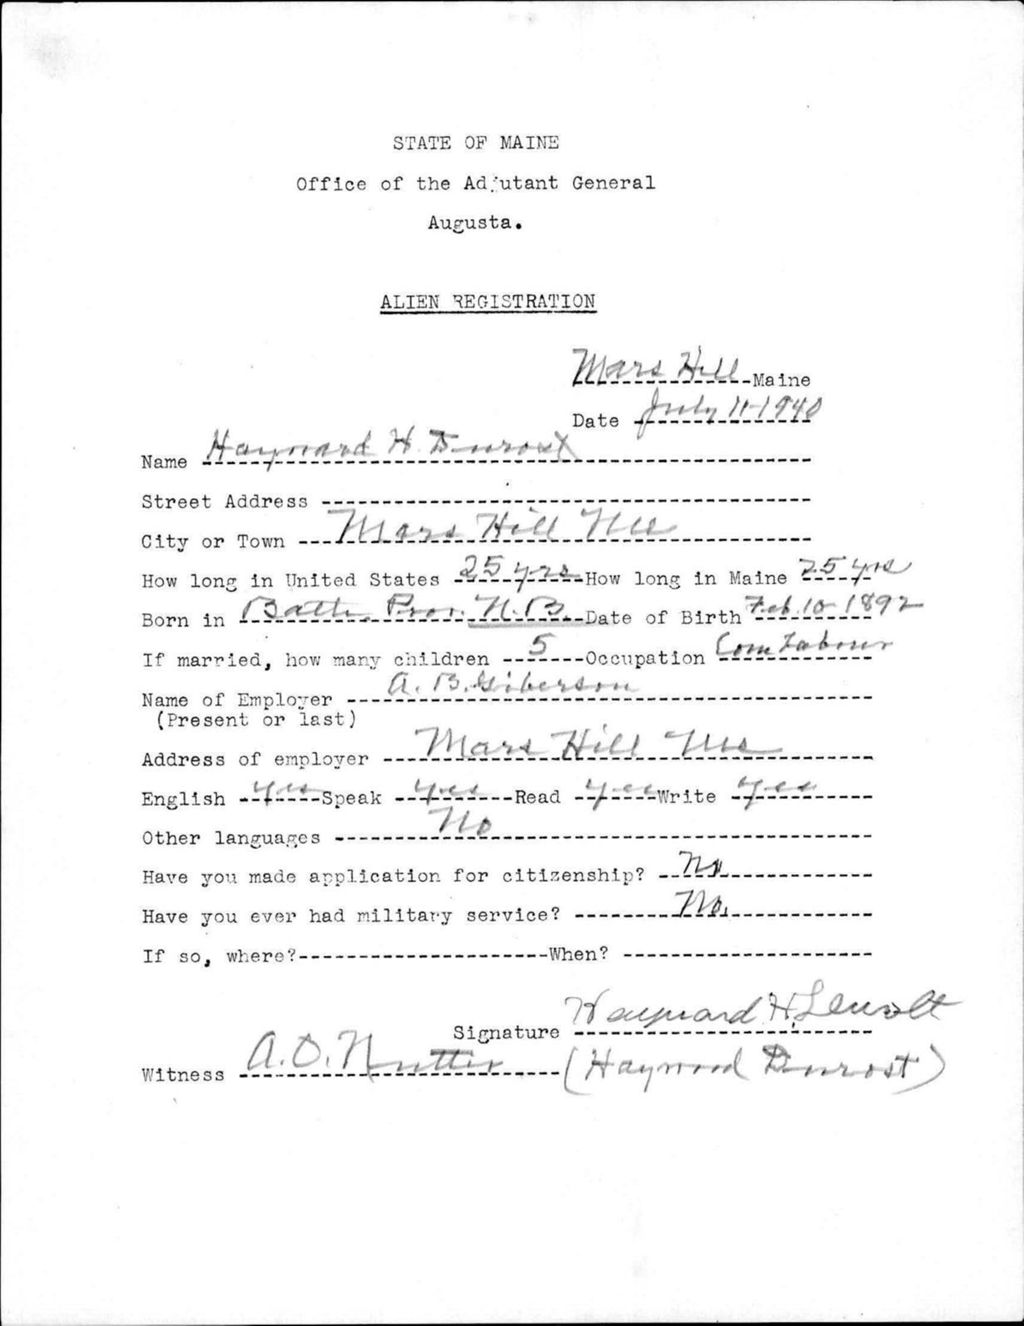 STATE OF MAINE
Office of the Adjutant General
Augusta.
ALIEN REGISTRATION
Mars Hill Maine
Date July 11-1940
Name Hayward H. Durost
Street Address
City or Town Mars Hill Me
How long in United States 25 yrs How long in Maine 25 yrs
Born in Bath Prov. N.B. Date of Birth Feb. 10-1892
If married, how many children 5 Occupation Com Labour
Name of Employer A. B. Giberson
(Present or last)
Address of employer Mars Hill Me
English yes Speak yes Read yes Write yes
Other languages No
Have you made application for citizenship? No
Have you ever had military service? No.
If so, where? When?
Signature Hayward H.
Witness A. O. Nutter (Haywood Durost)